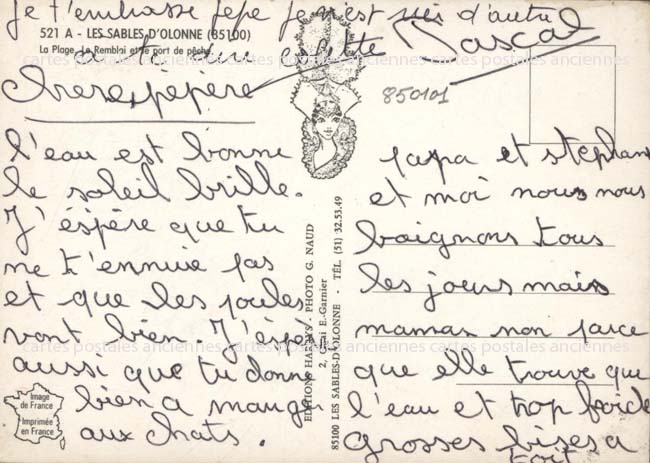 je t'embrasse pepe je n'est rien d'autre
521 A - LES SABLES D'OLONNE (85100)
La Plage, le Remblai et le port de pêche
Pascal
850101
chere pépère
l'eau est bonne
le soleil brille.
J'éspère que tu
ne t'ennuie pas
et que les poules
vont bien. J'éspè
aussi que tu donne
bien a mangé
aux chats.
Image
de France
Imprimée
en France
EDITIONS - PHOTO G. NAUD
2, E.-Garnier
85100 LES SABLES-D'OLONNE - TÉL. (51) 32.53.49
papa et stephan
et moi nous nous
baignons tous
les jours mais
maman non parce
que elle trouve que
l'eau et trop froide
grosses bises a
toit
cartes postales anciennes cartes postales anciennes cartes postales anciennes
cartes postales anciennes cartes postales anciennes cartes postales anciennes